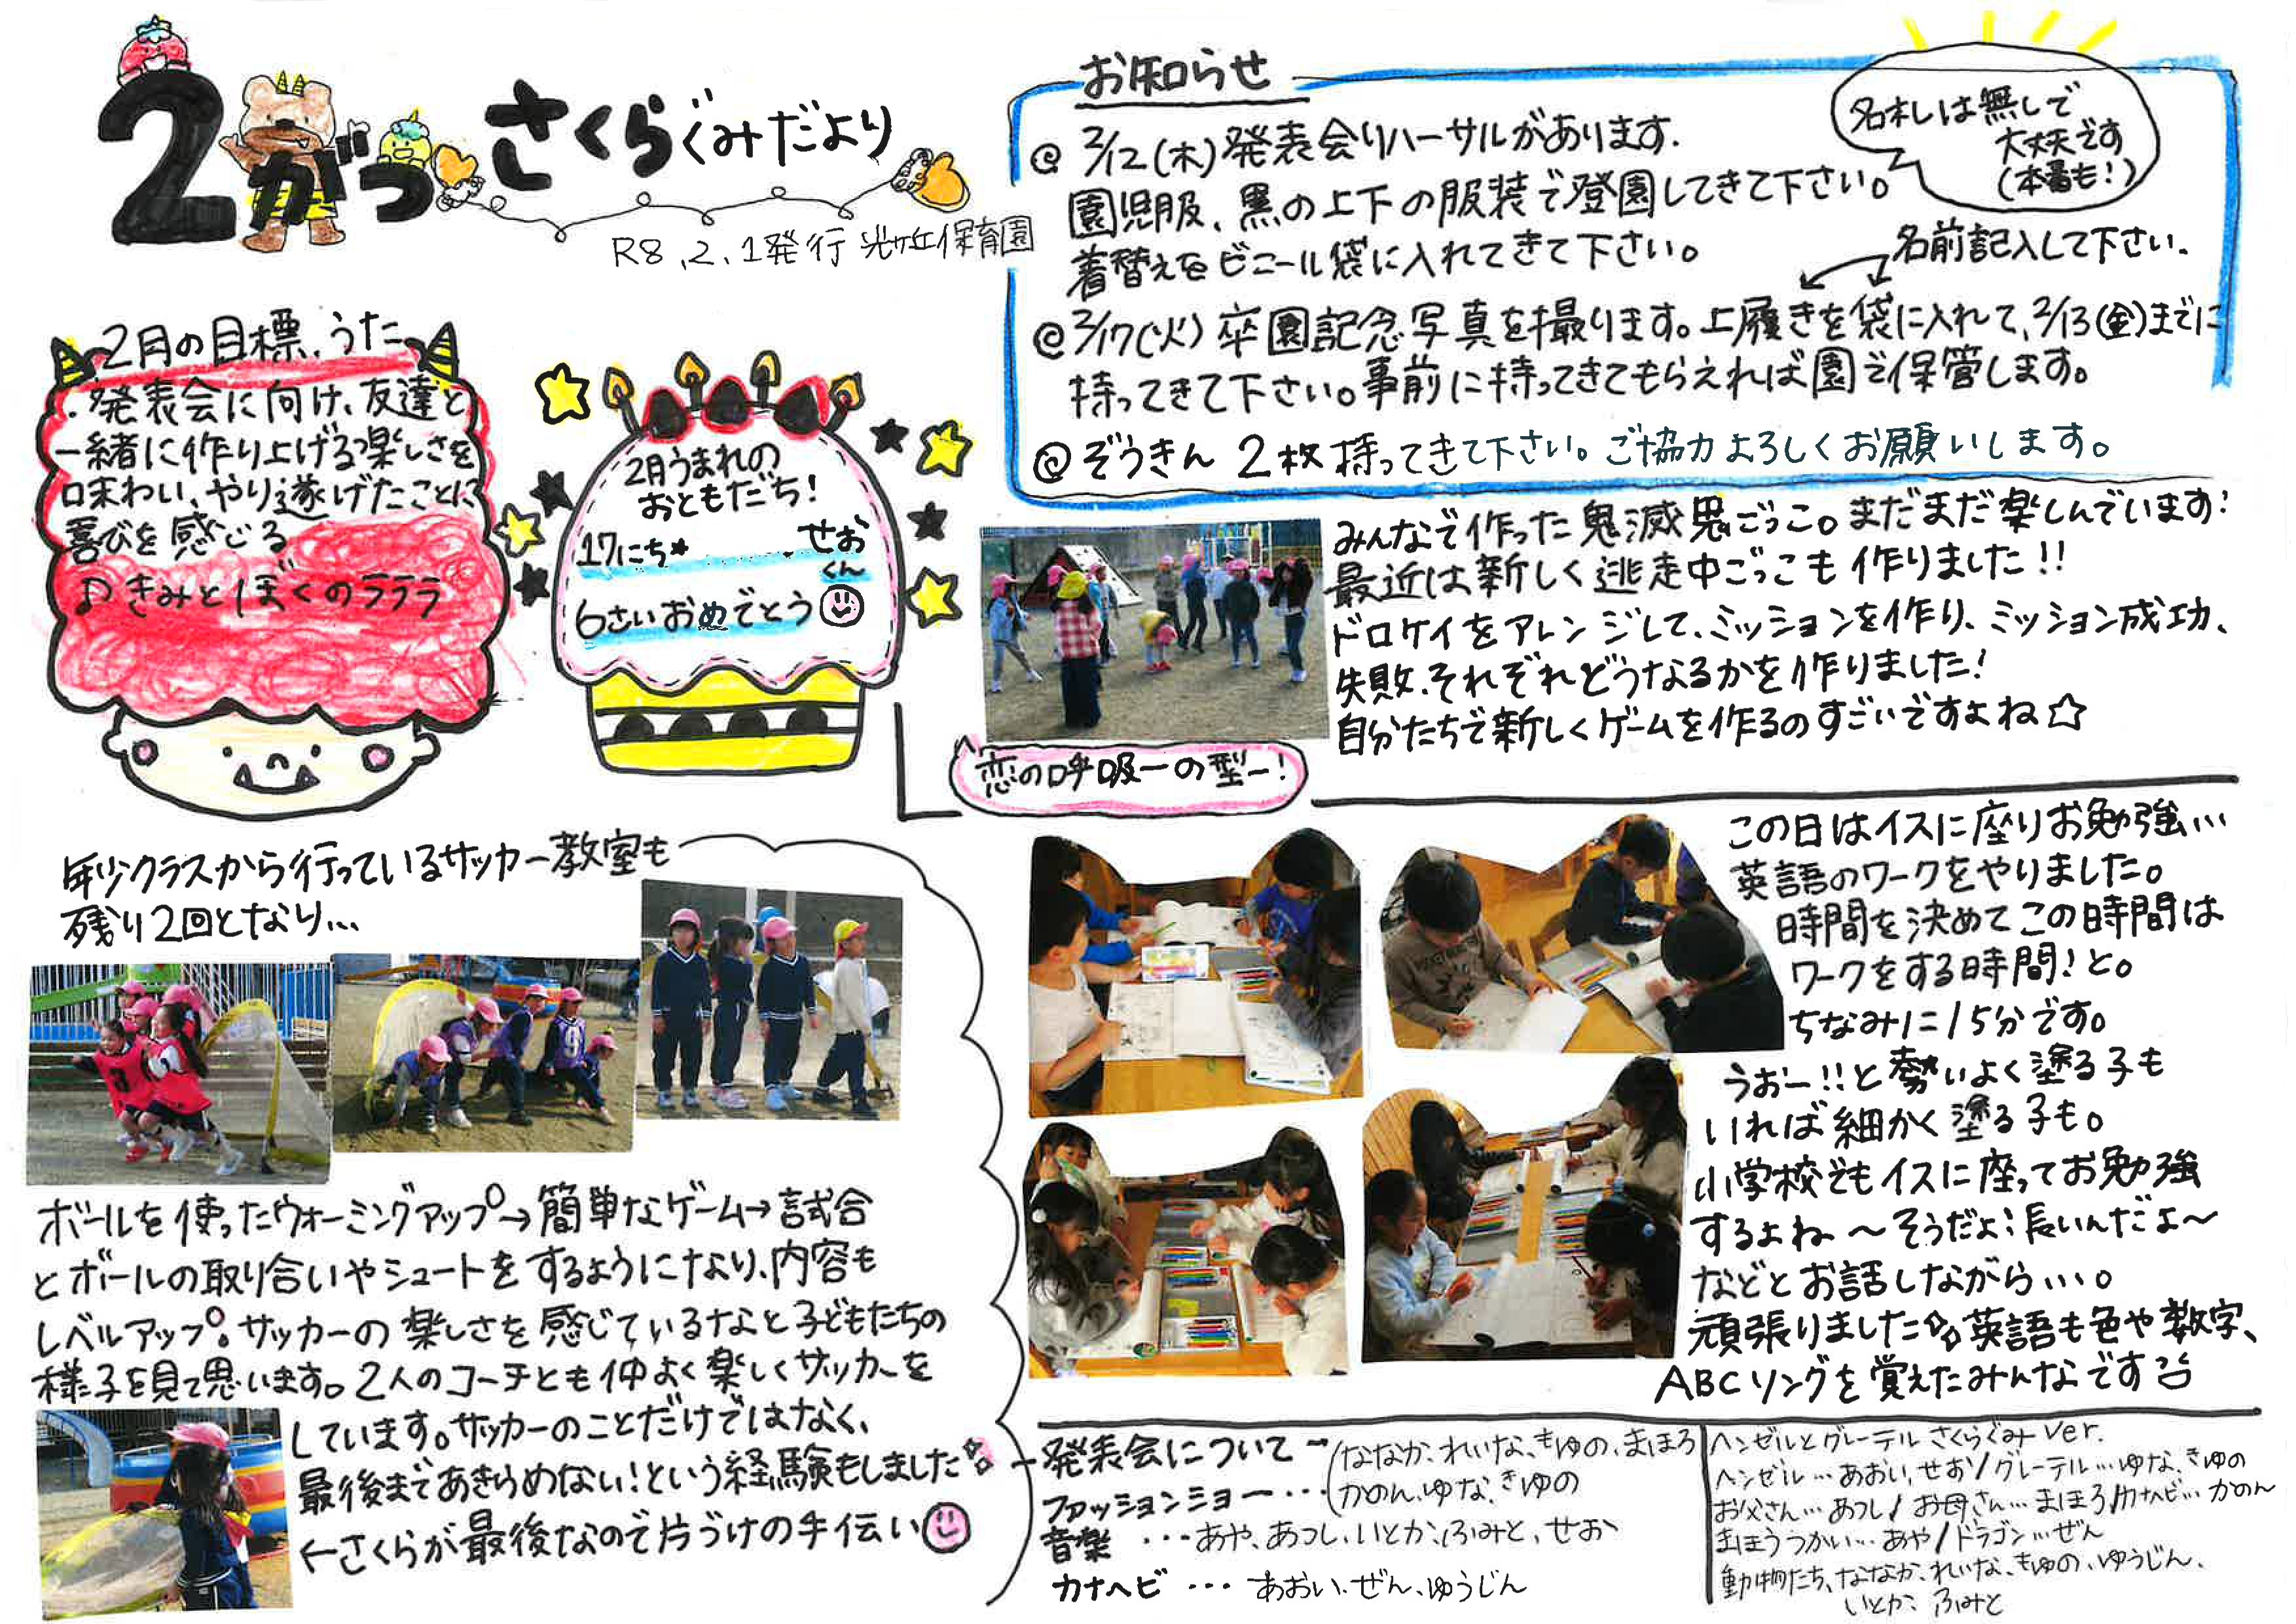 2がつ さくらぐみだより
R8.2.1発行 光ヶ丘保育園
お知らせ
@ 2/12(木)発表会リハーサルがあります.
園児服、黒の上下の服装で登園してきて下さい。
着替えをビニール袋に入れてきて下さい。
名札は無しで
大丈夫です
(本番も!)
名前記入して下さい.
@ 2/17(火) 卒園記念写真を撮ります。上履きを袋に入れて、2/13(金)までに
持ってきて下さい。事前に持ってきてもらえれば園で保管します。
@ ぞうきん 2枚持ってきて下さい。ご協力よろしくお願いします。
2月の目標、うた
・発表会に向け、友達と
一緒に作り上げる楽しさを
味わい、やり遂げたことに
喜びを感じる
♪きみとぼくのラララ
2月うまれの
おともだち!
17にち* せお
くん
6さいおめでとう
みんなで作った鬼滅鬼ごっこ。まだまだ楽しんでいます!
最近は新しく逃走中ごっこも作りました!!
ドロケイをアレンジして、ミッションを作り、ミッション成功、
失敗、それぞれどうなるかを作りました!
自分たちで新しくゲームを作るのすごいですよね☆
恋の呼吸一の型ー!
年少クラスから行っているサッカー教室も
残り2回となり…
ボールを使ったウォーミングアップ→簡単なゲーム→試合
とボールの取り合いやシュートをするようになり、内容も
レベルアップ。サッカーの楽しさを感じているなと子どもたちの
様子を見て思います。2人のコーチとも仲よく楽しくサッカーを
しています。サッカーのことだけではなく、
最後まであきらめない!という経験もしました
←さくらが最後なので片づけの手伝い
この日はイスに座りお勉強…
英語のワークをやりました。
時間を決めてこの時間は
ワークをする時間!と。
ちなみに15分です。
うおー!!と勢いよく塗る子も
いれば細かく塗る子も。
小学校でもイスに座ってお勉強
するよね〜そうだよ!長いんだよ〜
などとお話しながら…。
頑張りました 英語も色や数字、
ABCソングを覚えたみんなです
発表会について
ファッションショー…(ななか、れいな、きゆの、まほろ
かのん、ゆな、きゆの
音楽 …あや、あつし、いとか、ふみと、せお
カナヘビ … あおい、ぜん、ゆうじん
ヘンゼルとグレーテル さくらぐみver.
ヘンゼル…あおい、せお/グレーテル…ゆな、きゆの
お父さん…あつし/お母さん…まほろ/カナヘビ…かのん
まほうつかい…あや/ドラゴン…ぜん
動物たち、ななか、れいな、きゆの、ゆうじん、
いとか、ふみと